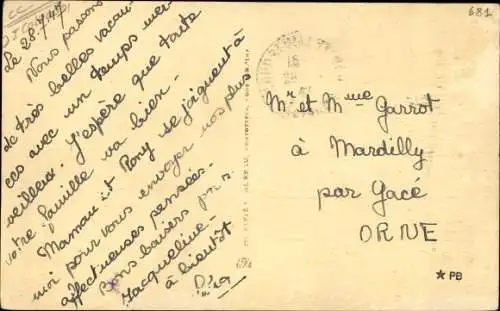 Le 28.7.47
Nous passons
de très belles vacan-
ces avec un temps mer-
veilleux. J'espère que toute
votre famille va bien.
Maman et Rony se joignent à
moi pour vous envoyer nos plus
affectueuses pensées.
Bons baisers
Jacqueline
à bientôt
681
Mr et Mme Garrot
à Mardilly
par Gacé
ORNE
★ PB